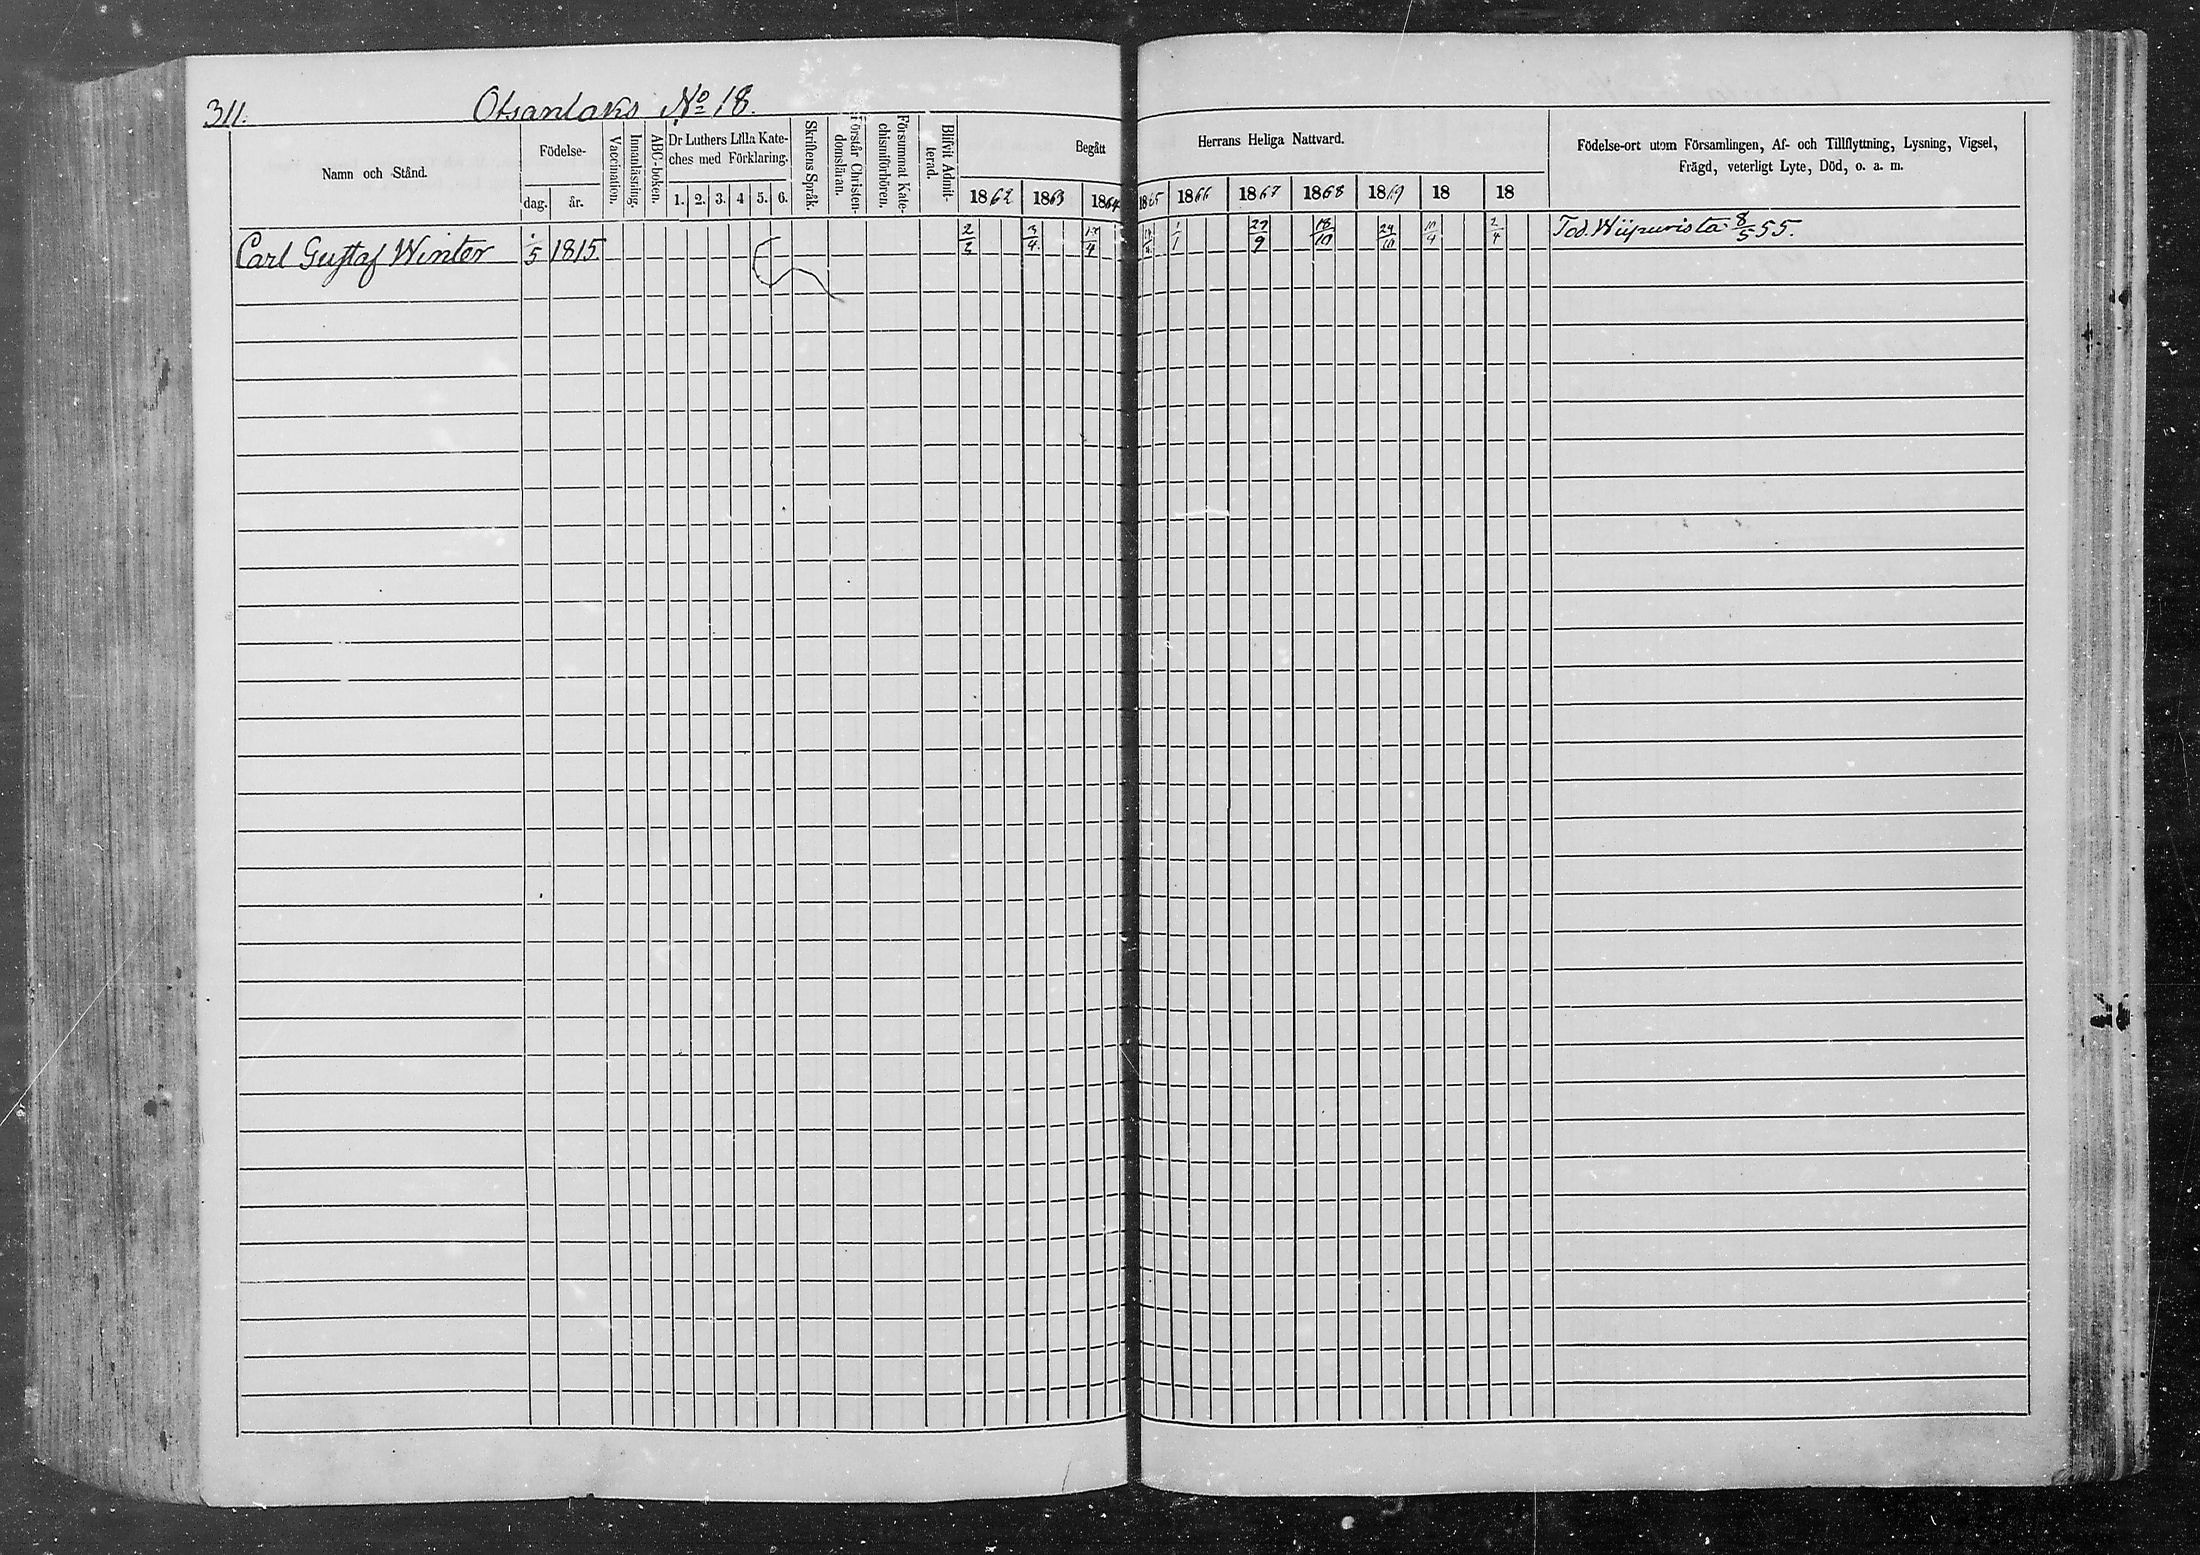 311. Otsanlaks No 18.
Namn och Stånd.
Födelse-
dag. år.
Vaccination.
Innanläsning.
ABC-boken.
Dr Luthers Lilla Kate-
ches med Förklaring.
1. 2. 3. 4 5. 6.
Skriftens Språk.
Förstår Christen-
domsläran.
Försummat Kate-
chismiförhören.
Blifvit Admit-
terad.
Begått Herrans Heliga Nattvard.
1862 1863 1864 1865 1866 1867 1868 1869 18 18
Födelse-ort utom Församlingen, Af- och Tillflyttning, Lysning, Vigsel,
Frägd, veterligt Lyte, Död, o. a. m.
Carl Gustaf Winter 5 1815 3/4 1/1 29/9 18/10 24/10 2/4 Tod. Wiipurista 8/5 55.